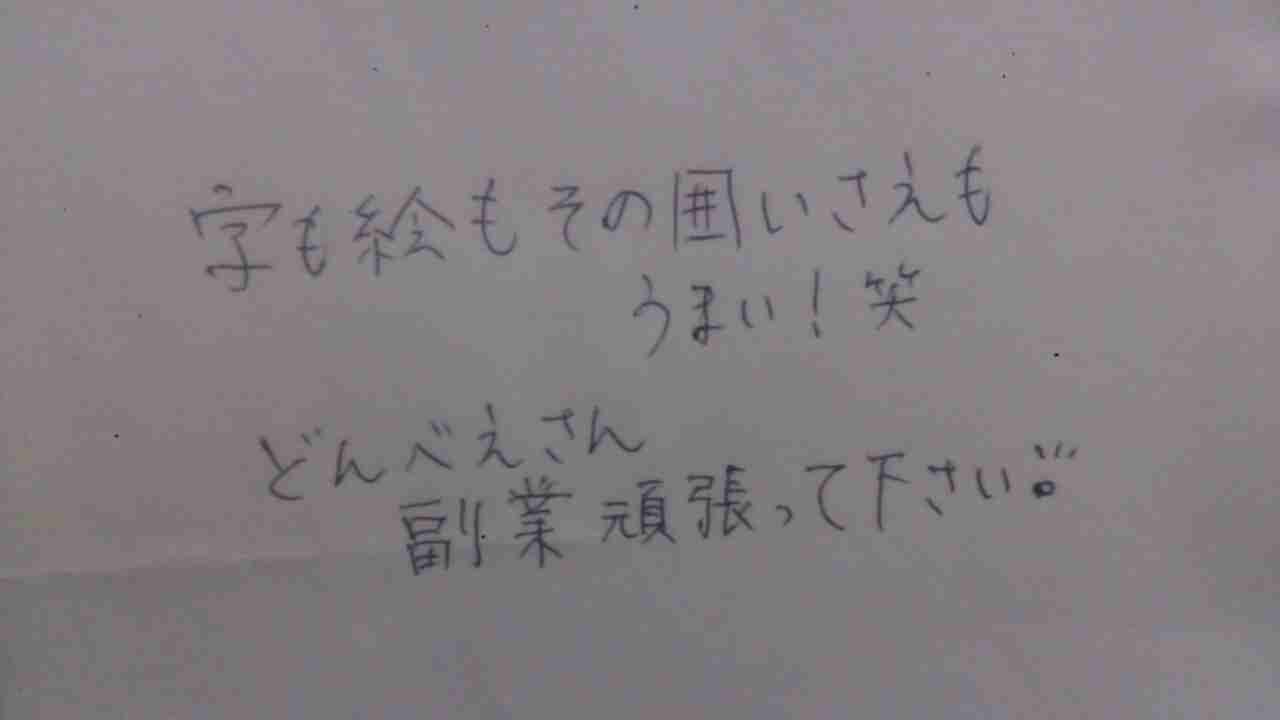 字も絵もその囲いさえも
うまい！笑
どんべえさん
副業頑張って下さい